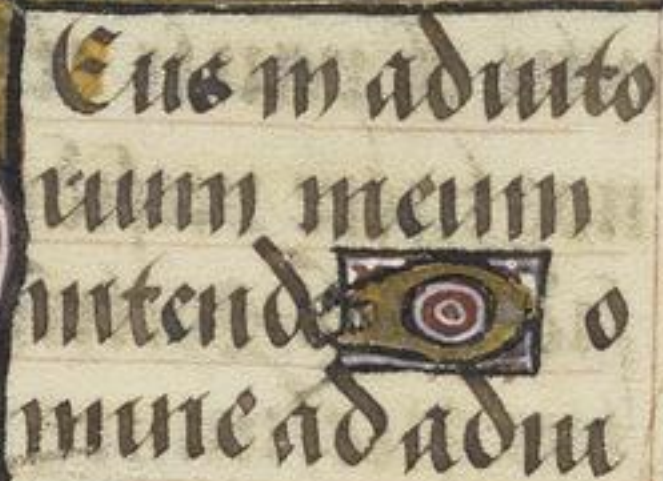 Eus in adiuto
rium meum
intende o
mine ad adiu